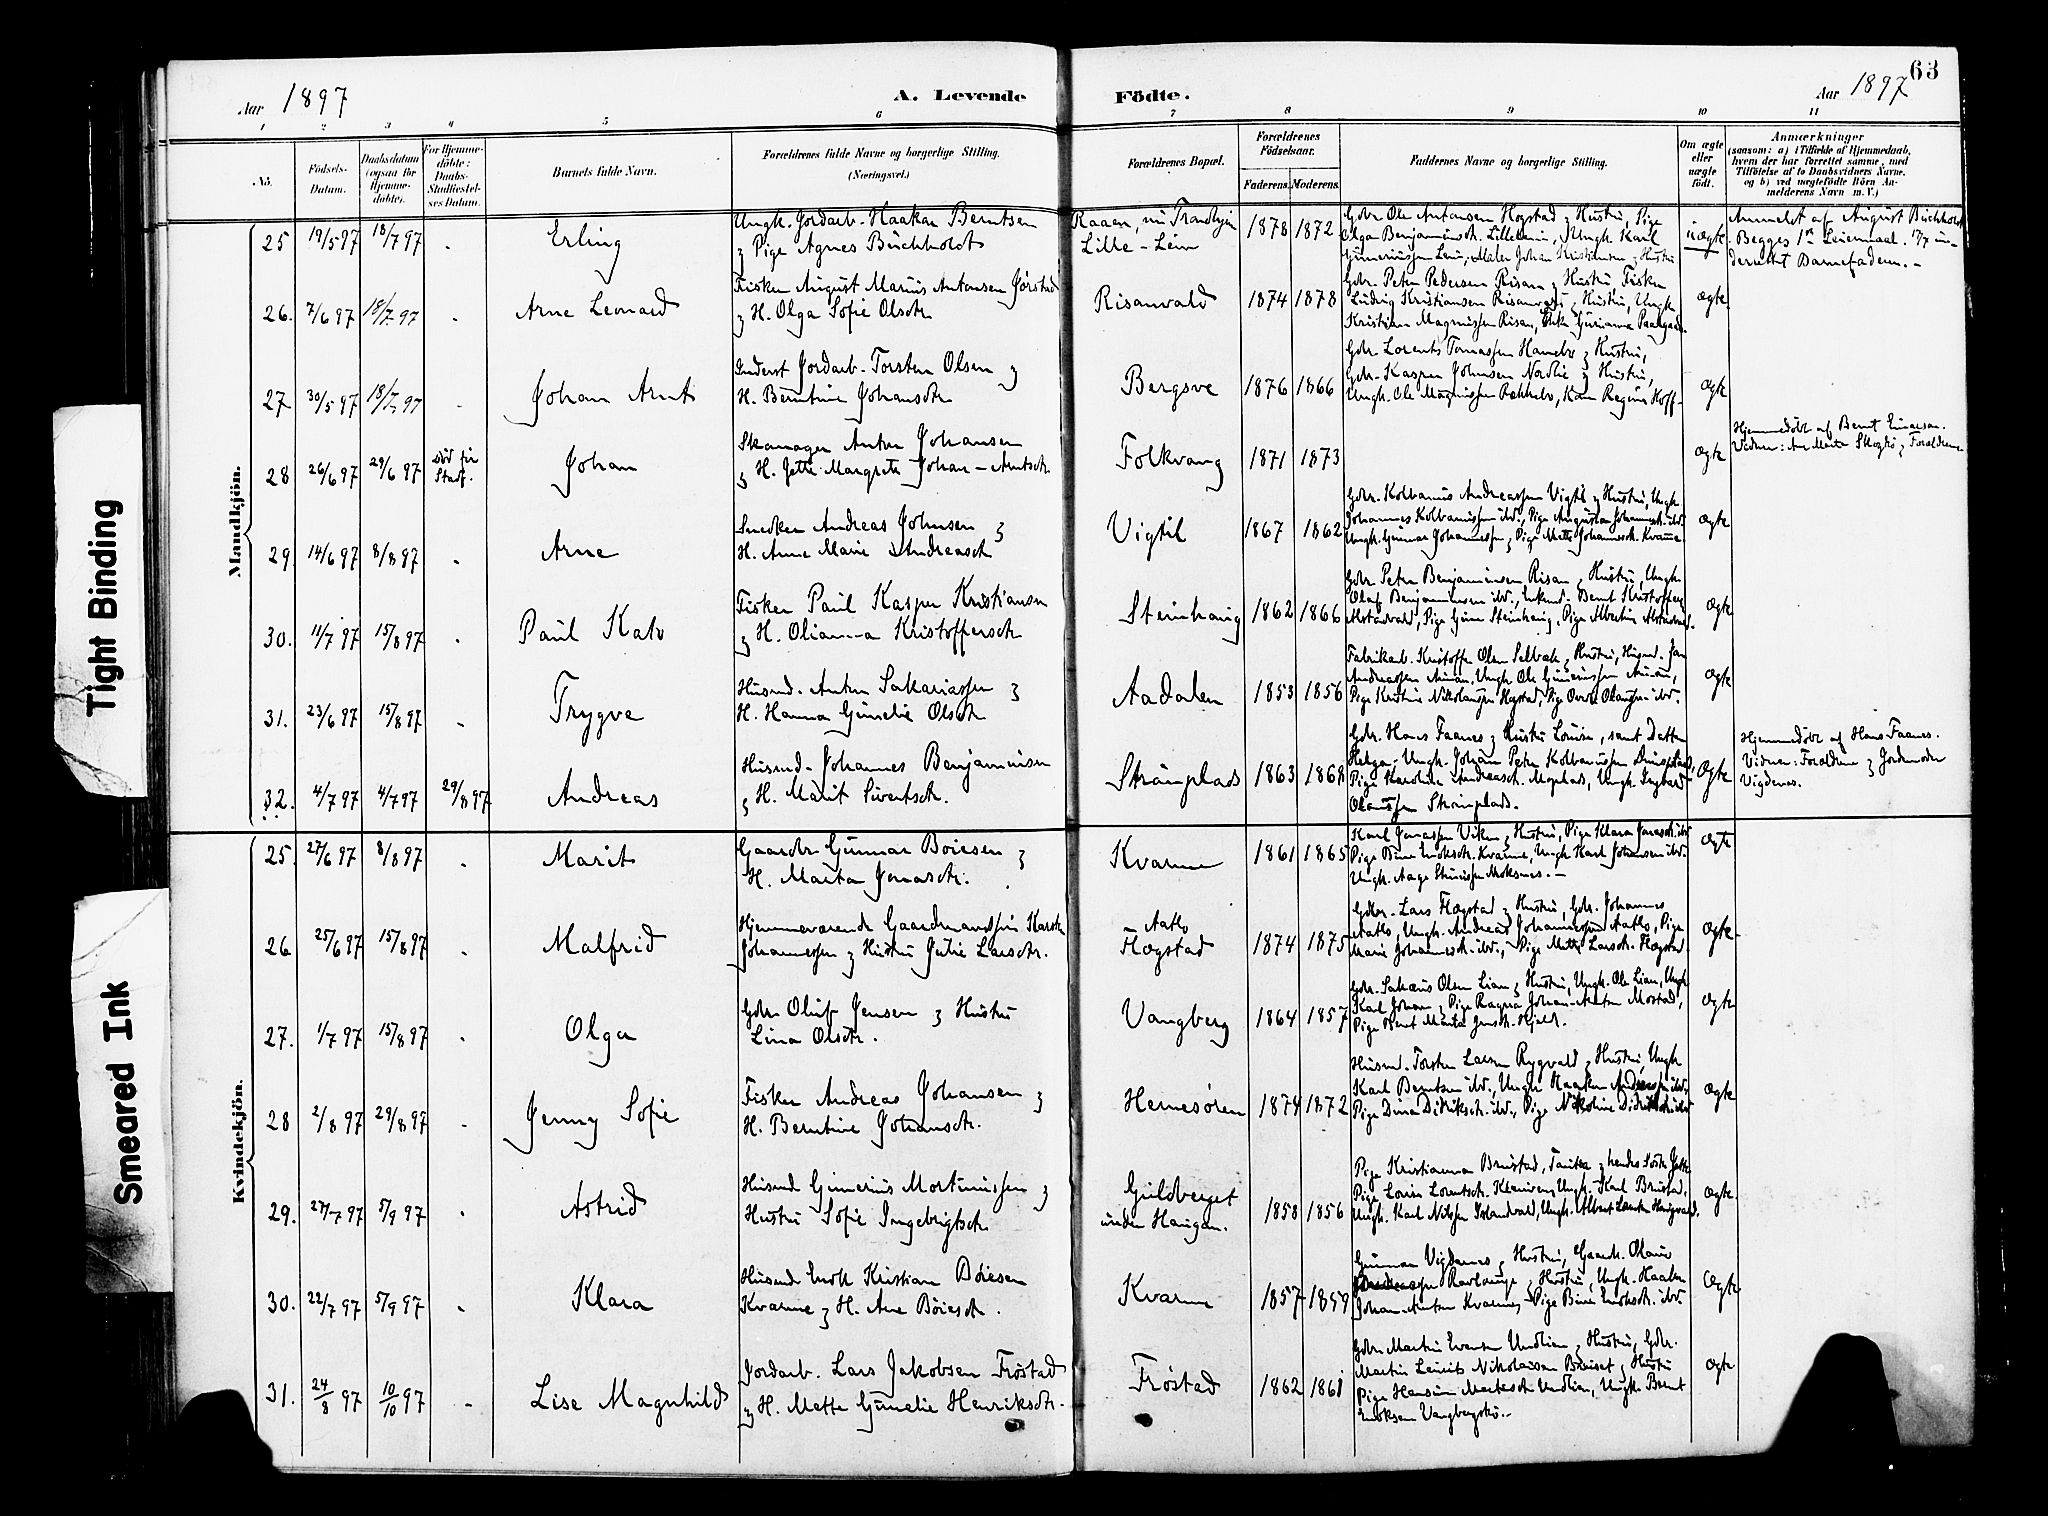 Aar 1897
A. Levende
Födte.
Aar 1897
63
1 2 3 4 5 6 7 8 9 10 11
No.
Födsels-
Datum.
Daabsdatum
(ogsaa for
Hjemme-
döbte).
For Hjemme-
döbte:
Daabs-
Stadfæstel-
ses Datum.
Barnets fulde Navn.
Forældrenes fulde Navne og borgerlige Stilling.
(Næringsvei.)
Forældrenes Bopæl.
Forældrenes
Födselsaar.
Faderens. Moderens.
Faddernes Navne og borgerlige Stilling.
Om ægte
eller
uægte
födt.
Anmærkninger
(saasom: a) i Tilfælde af Hjemmedaab,
hvem der har forrettet samme, med
Tilföielse af to Daabsvidners Navne,
og b) ved uægtefödte Börn An-
melderens Navn m. V.)
Mandkjön.
25 19/5 97 18/7 97 - Erling
Ungk. Jordarb. Haakon Berntsen
& Pige Agnes Buchholdt
Lille-Lein
1878 1872
Gdbr. Ole Antonsen Hogstad & Hustru, Pige
Olga Benjaminsdtr. Ungk. Karl
Maler Johan Kristiansen & Hustru
uægte
Anmeldt af August Buchholdt
Begges 1ste Leiermaal. 17/7 un-
derrettet Barnefaderen. -
26. 7/6 97 18/7 97 - Arne Leonard
Fisker August Marius Antonsen Jørstad
& H. Olga Sofie Olsdtr.
Risanvald
1874 1878
Gdbr. Peter Pedersen Risan & Hustru, Fisker
Ludvig Kristiansen Risanvald & Hustru, Ungk.
Kristian Magnussen Risan, Enke
ægte
27 30/5 97 18/7 97 - Johan Arnt
Inderst Jordarb. Torsten Olsen &
H. Berntine Johansdtr.
Bergsve
1876 1866
Gdbr. Lorents Tomassen & Hustru,
Gdbr. Kasper Johnsen Nordlie & Hustru,
Ungk. Ole Magnussen
ægte
28 26/6 97 29/6 97 død før
Stadf. Johan
Skomager Anton Johansen
& H. Jette Margrete Johan-Arntsdtr.
Folkvang
1871 1873
ægte
Hjemmedøbt af Bernt Einarsen.
Vidner: & Forældrene
29. 14/6 97 8/8 97 - Arne
Snedker Andreas Johnsen &
H. Anne Marie Andreasdtr.
Vigtil
1867 1862
Gdbr. Kolbanus Andreassen Vigtil & Hustru, Ungk.
Johannes Kolbanussen ibd., Pige Augusta Johannesdtr. ibd.
Ungk. Gunnar Johannessen & Pige Mette Johannesdtr. Kvarme
ægte
30. 11/7 97 15/8 97 - Paul Kato
Fisker Paul Kasper Kristiansen
& H. Olianna Kristoffersdtr.
Steinhaug
1862 1866
Gdbr. Peter Benjaminsen Risan & Hustru, Ungk.
Olaf Benjaminsen ibd., Bernt Kristoffersen
Pige Steinhaug, Pige Albertine
ægte
31. 23/6 97 15/8 97 - Trygve
Husmd. Anton Sakariassen &
H. Hanna Gunelie Olsdtr.
Aadalen
1853 1856
Fabrikarb. Kristoffer Olsen Selbæk & Hustru, Husmd. Jan
Andreassen Ungk. Ole
Pige Kristine Nikolausen Hogstad, Pige ibd.
ægte
32. 4/7 97 4/7 97 29/8 97 Andreas
Husmd. Johannes Benjaminsen
& H. Marit Sivertsdtr.
Strømplads
1863 1868
Gdbr. Hans Faanes & Hustru Louise, samt Datter
Helga. Ungk. Johan Peter Kolbanussen
Pige Karoline Andreasdtr. Moplads, Ungk.
Olaussen Strømplads.
ægte
Hjemmedøbt af Hans Faanes.
Vidner: Forældrene & Jordmoder
Vigdenes.
Kvindekjön.
25. 27/6 97 8/8 97 - Marit
Gaardbr. Gunnar Boiesen &
H. Marta Jonasdtr.
Kvarme
1861 1865
Karl Jonassen Viken & Hustru, Pige Klara Jonasdtr. ibd.
Pige Enoksdtr. Kvarme, Ungk. Karl Johansen ibd.
Ungk. Aage
ægte
26 25/6 97 15/8 97 - Malfrid
Hjemmeværende Gaardmandssøn
Johannessen & Hustru Julie Larsdtr.
Aatlo
Flægstad
1874 1875
Gdbr. Lars Flægstad & Hustru, Gdbr. Johannes
Aatlo, Ungk. Andreas Johannessen Aatlo, Pige
Marie Johannesdtr. ibd., Pige Mette Larsdtr. Flægstad.
ægte
27. 1/7 97 15/8 97 - Olga
Gdbr. Oluf Jensen & Hustru
Lina Olsdtr.
Vangberg
1864 1857
Gdbr. Olsen Lian & Hustru, Ungk. Ole Lian, Ungk.
Karl Johan & Pige Ragna Johan-Anton Mostad,
Pige Jensdtr.
ægte
28 2/8 97 29/8 97 - Jenny Sofie
Fisker Andreas Johansen &
H. Berntine Johansdtr.
Hernesøren
1874 1872
Husmd. Torsten Larsen Rygvald & Hustru, Ungk.
Karl Berntsen ibd., Ungk. Haakon Andreassen ibd.
Pige Dina Didriksdtr. ibd., Pige Nikoline Didriksdtr. ibd.
ægte
29. 27/7 97 5/9 97 - Astrid
Husmd. Gunerius Mortinussen &
Hustru Sofie Ingebrigtsdtr.
Guldberget
under Haugan.
1858 1856
Pige Kristianna Brustad, & hendes
Pige Lovise Lorentsdtr. Ungk. Karl Brustad,
Ungk. Karl Nilsen Ungk. Albert
ægte
30. 22/7 97 5/9 97 - Klara
Husmd. Enok Kristian Böiesen
Kvarme & H. Ane Böiesdtr.
Kvarme
1857 1859
Gunnar Vigdenes & Hustru, Gaardb. Olaus
& Hustru, Ungk. Haakon
Johan-Anton Kvarme, Pige Enoksdtr. ibd.
ægte
31. 24/8 97 10/10 97 - Lise Magnhild
Jordarb. Lars Jakobsen Frøstad
& H. Mette Gunelie Henriksdtr.
Frøstad
1862 1861
Gdbr. Martin Evensen Undlien & Hustru, Gdbr.
Martin Nikolaisen & Hustru
Pige Undlien, Ungk. Bernt
Enoksen
ægte
Tight Binding
Smeared Ink